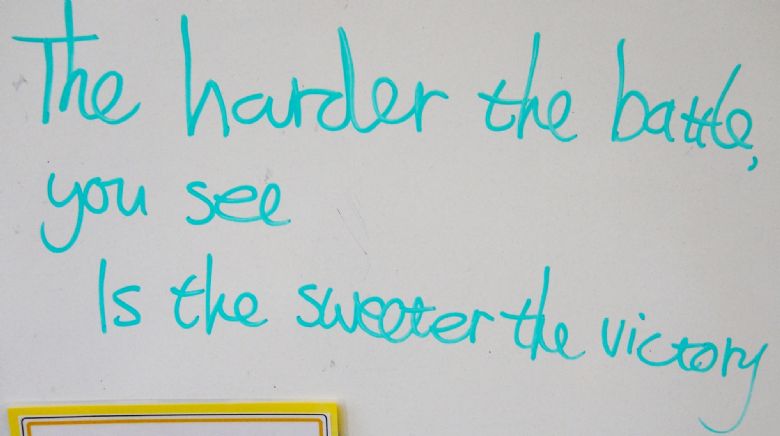 The harder the battle,
you see
Is the sweeter the victory